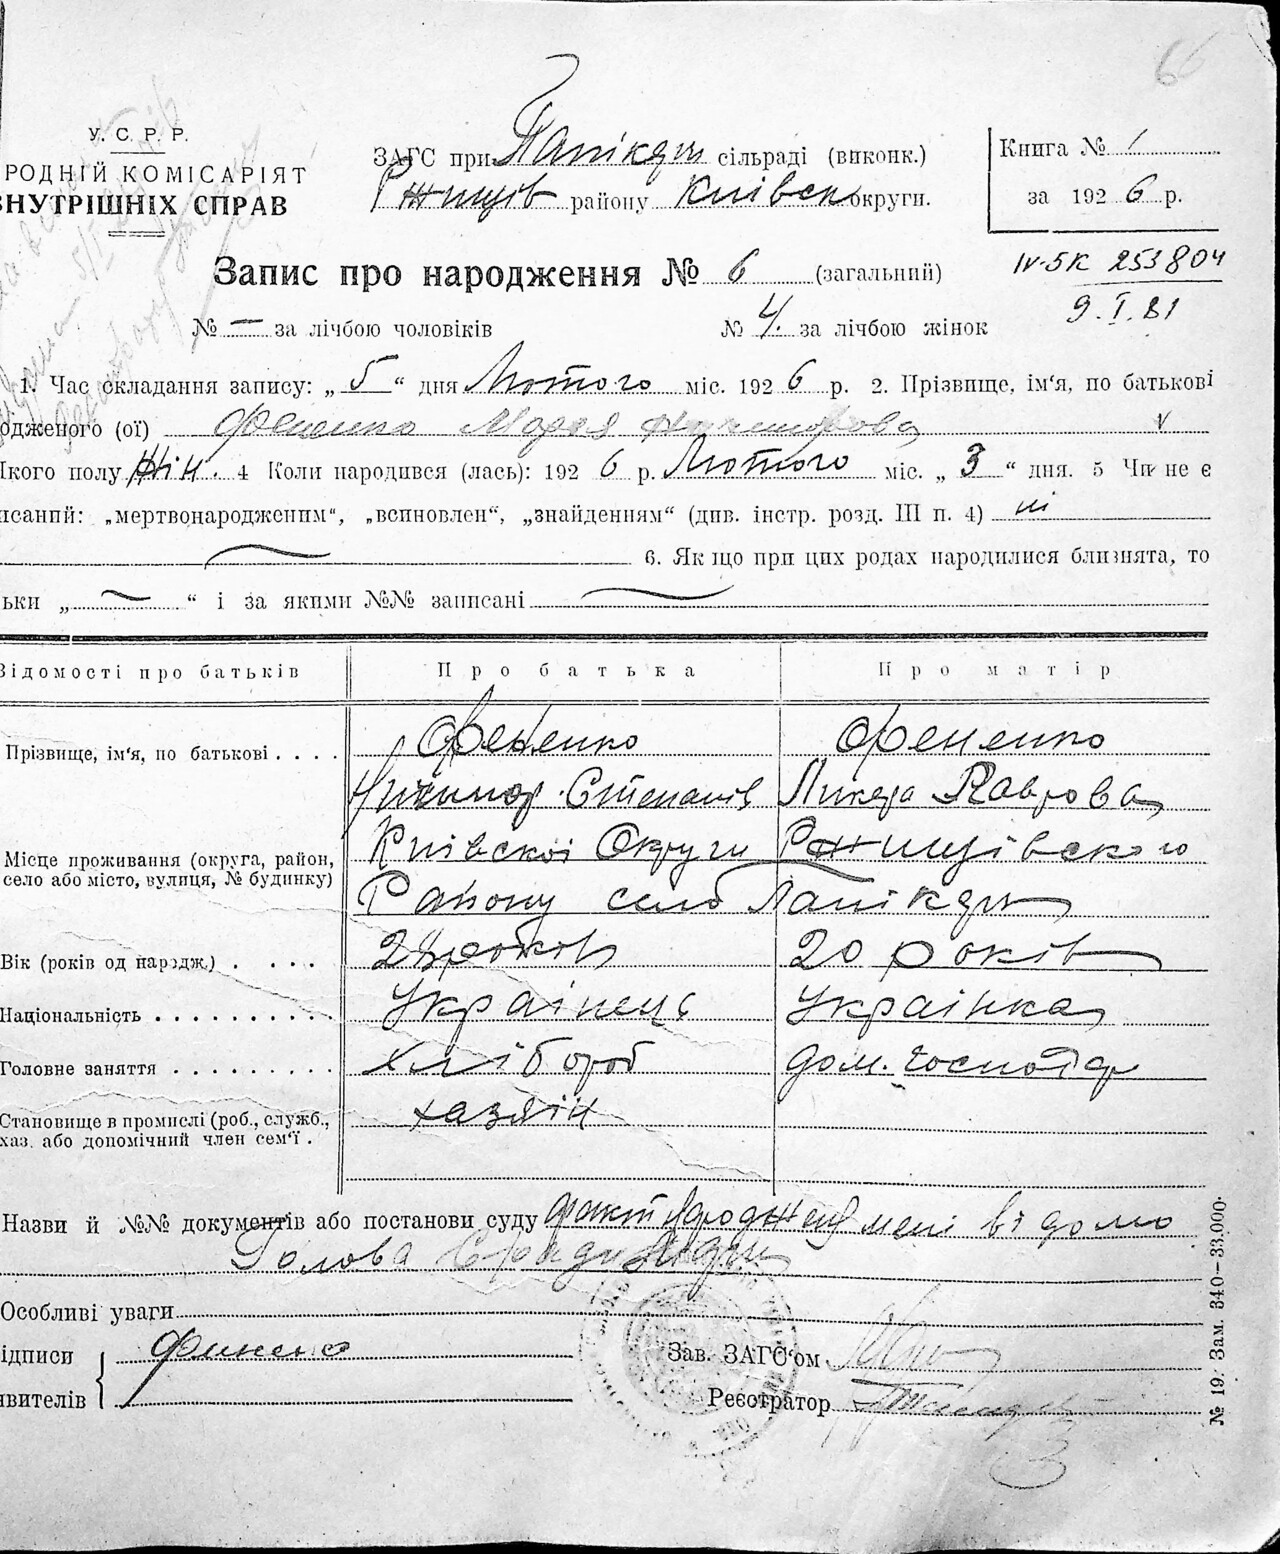 66
У. С. Р. Р.
РОДНІЙ КОМІСАРІЯТ
ВНУТРІШНІХ СПРАВ
ЗАГС при сільраді (виконк.)
Ржищів району Київськ округи.
Книга № 1
за 1926 р.
Запис про народження № 6 (загальний)
IV-5К 253804
9.I.81
№ — за лічбою чоловіків № 4. за лічбою жінок
1. Час складання запису: „5“ дня Лютого міс. 1926 р. 2. Прізвище, ім'я, по батькові
одженого (ої) Фененко Мария v
Якого полу жін. 4 Коли народився (лась): 1926 р. Лютого міс. „3“ дня. 5 Чи не є
исаний: „мертвонародженим“, „всиновлен“, „знайденням“ (див. інстр. розд. III п. 4) ні
6. Якщо при цих родах народилися близнята, то
ьки „ — “ і за якими №№ записані —
Відомості про батьків Про батька Про матір
Прізвище, ім'я, по батькові . . . . Фененко Фененко
Степанів Ликера Лаврова
Місце проживання (округа, район, село або місто, вулиця, № будинку) Київскоі Округи Ржищівского
Району село
Вік (років од народж.) . . . . років 20 років
Національність . . . . . . . . . . Українець Українка
Головне заняття . . . . . . . . . Хлібороб дом. господар
Становище в промислі (роб., служб., хаз. або допомічний член сем'ї . хазяїн
Назви й №№ документів або постанови суду факт мені відомо
Голова
Особливі уваги
ідписи Фененко Зав. ЗАГС'ом
явителів Реєстратор
№ 19. Зам. 340—33.000.